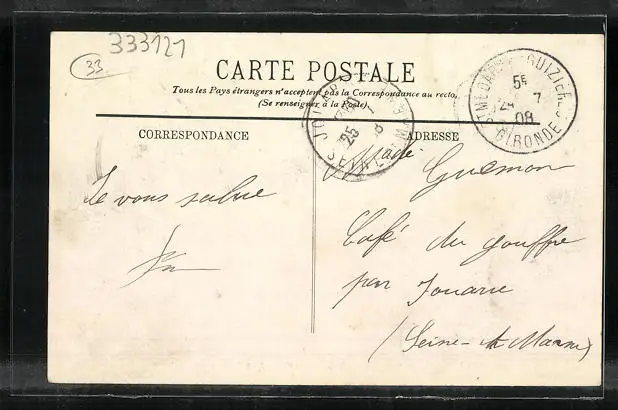 333121
33
CARTE POSTALE
Tous les Pays étrangers n'acceptent pas la Correspondance au recto.
(Se renseigner à la Poste).
5E
24 7
08
GIRONDE
25
CORRESPONDANCE
ADRESSE
Je vous salue
Guemon
Café du gouffre
par Jouarre
(Seine-et-Marne)